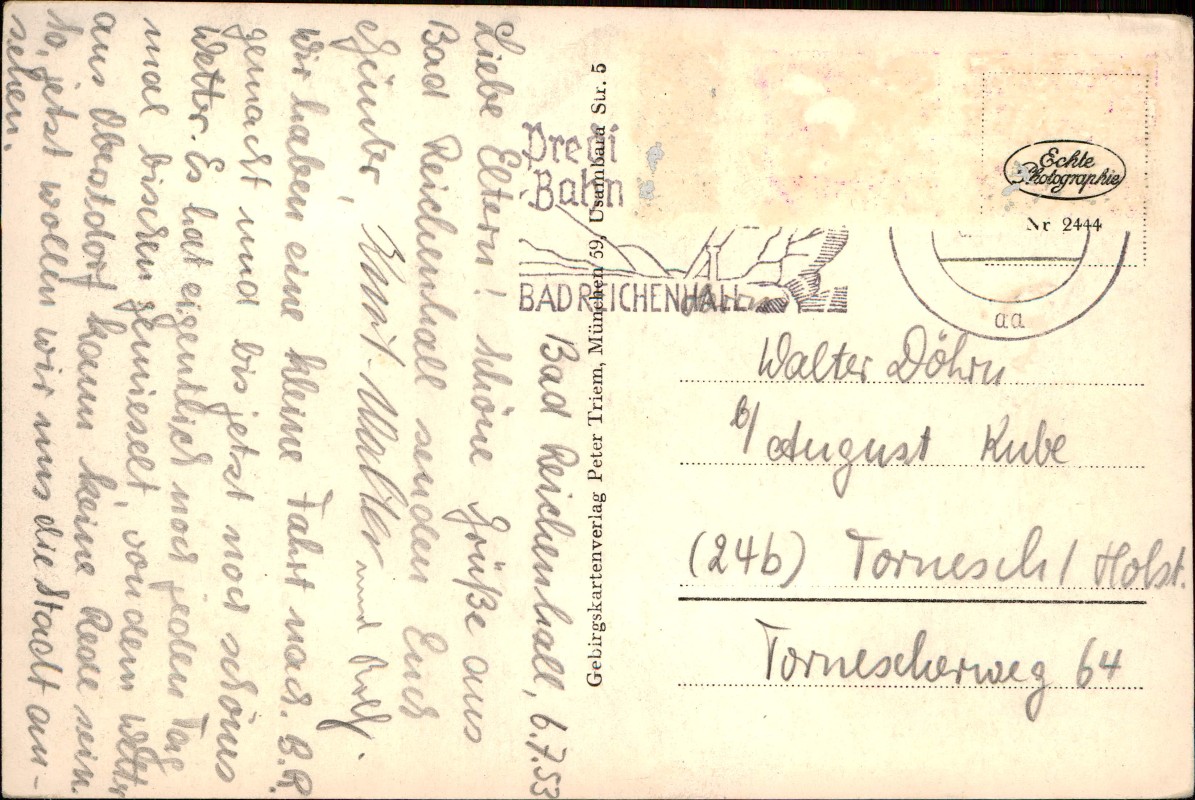 Bad Reichenhall, 6.7.53
Liebe Eltern! Schöne Grüße aus
Bad Reichenhall senden Euch
Günter, Kurt-Walter und Rolf.
Wir haben eine kleine Fahrt nach B.R.
gemacht und bis jetzt noch schönes
Wetter. Es hat eigentlich noch jeden Tag
mal bischen genieselt, von dem Wetter
aus Oberstdorf kann keine Rede sein.
So, jetzt wollen wir uns die Stadt an-
sehen.
Gebirgskartenverlag Peter Triem, München 59, Usambara Str. 5
Predigt
Bahn
BAD REICHENHALL
aa
Echte
Photographie
Nr 2444
Walter Döhrn
b/ August Kube
(24b) Tornesch / Holst.
Tornescherweg 64